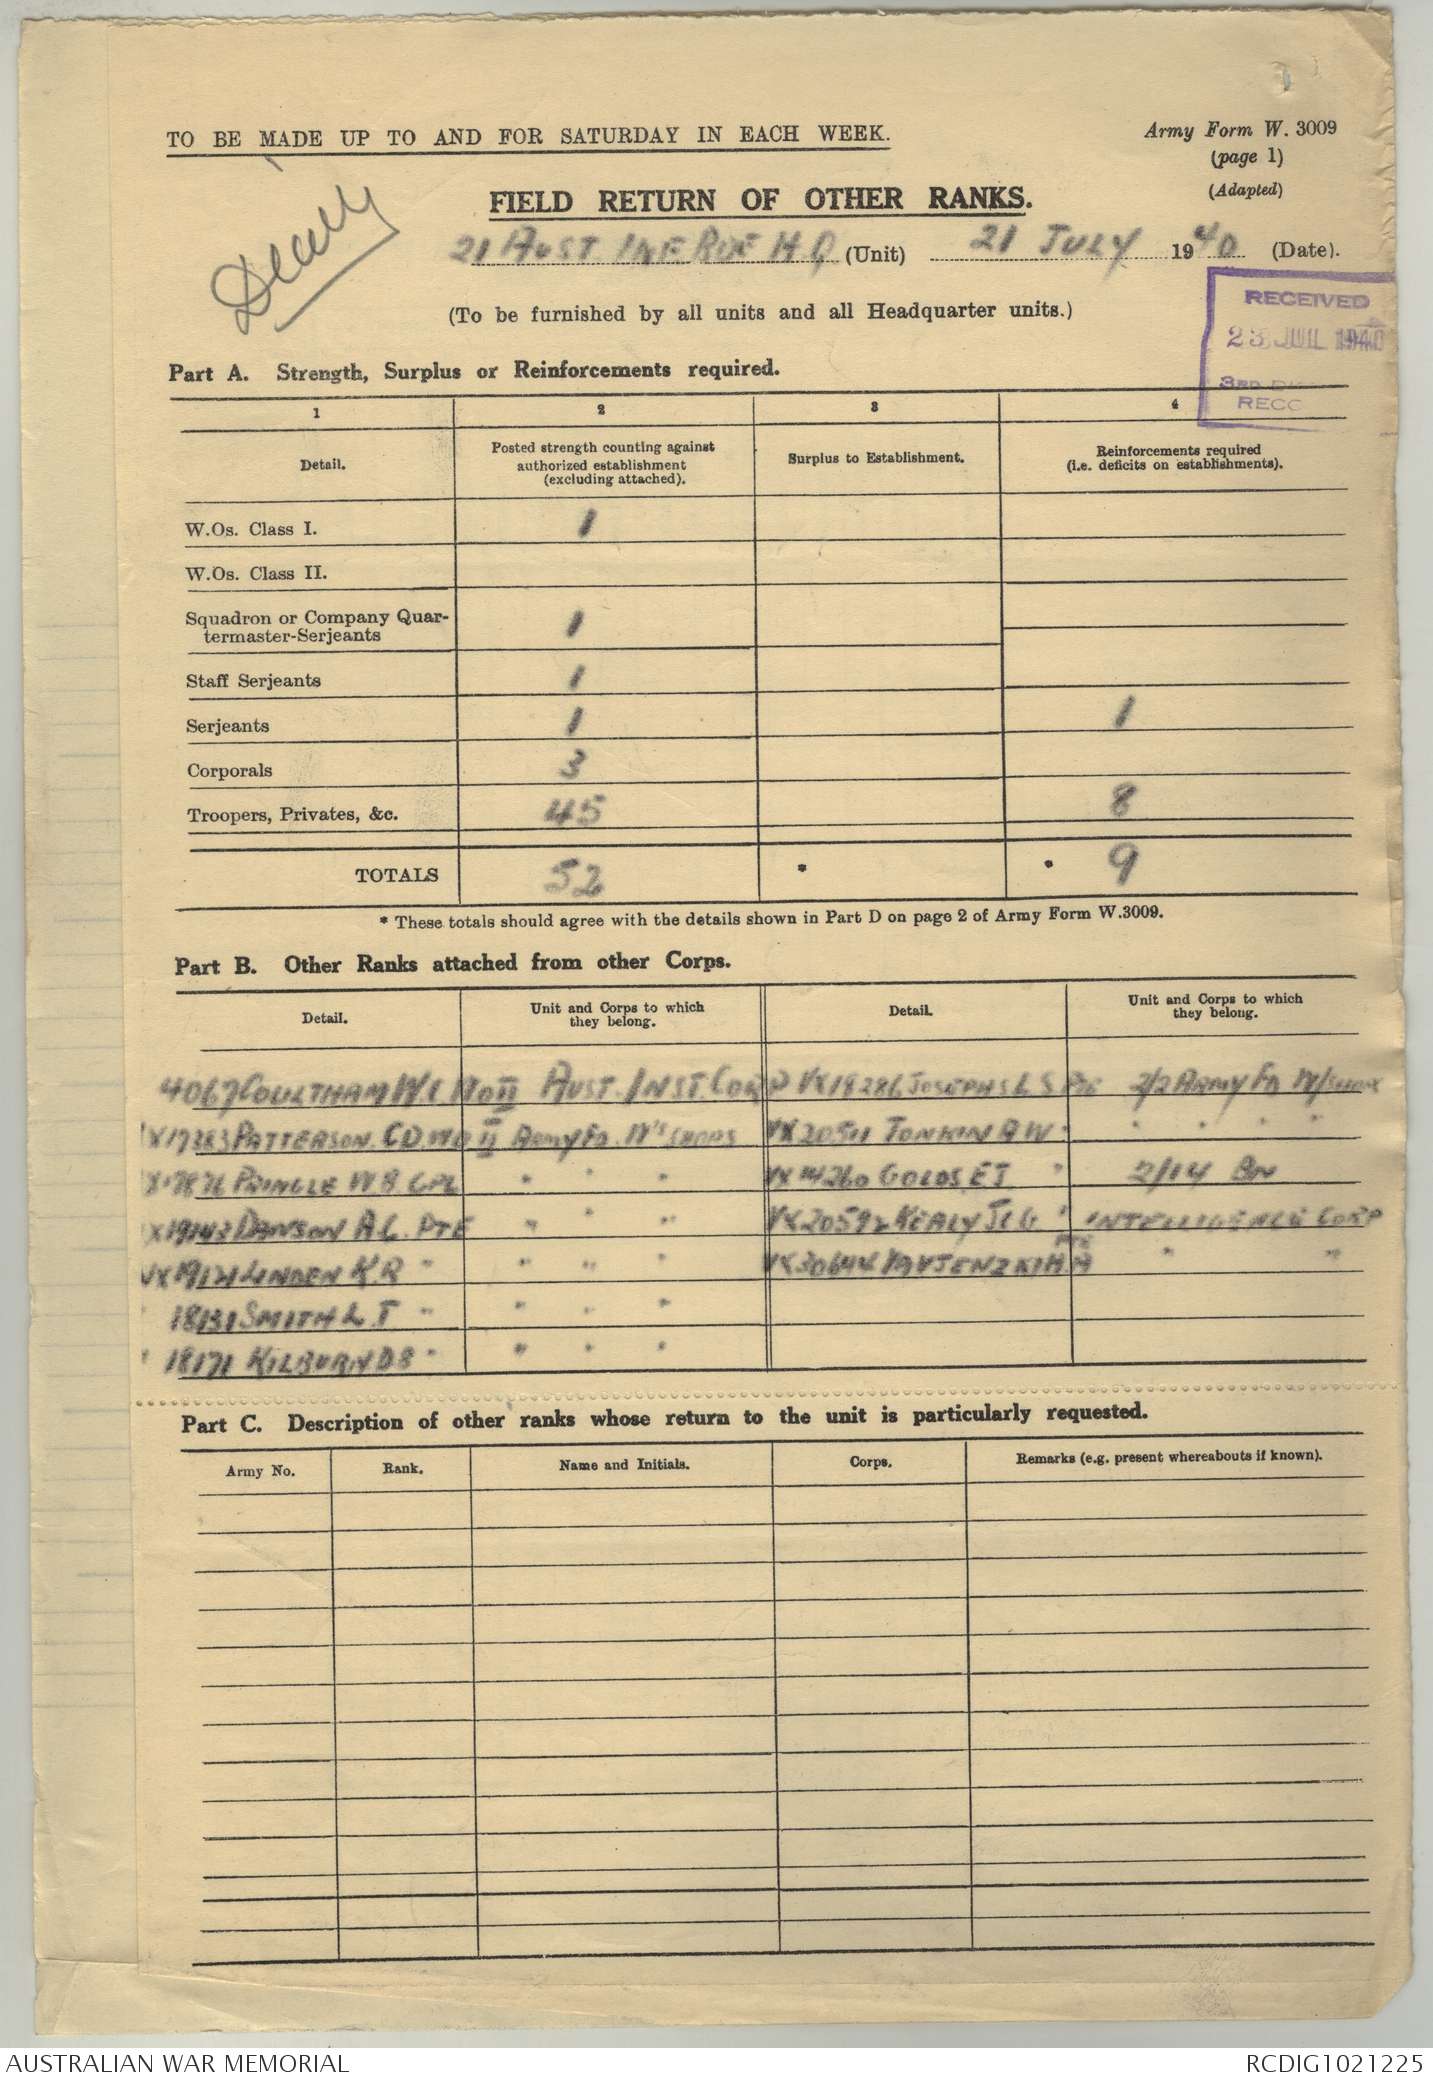 TO BE MADE UP TO AND FOR SATURDAY IN EACH WEEK.
Army Form W. 3009
(page 1)
(Adapted)
FIELD RETURN OF OTHER RANKS.
21 AUST INF BDE H.Q. (Unit) 21 JULY 1940 (Date).
(To be furnished by all units and all Headquarter units.)
RECEIVED
23 JUL 1940
3RD
Part A. Strength, Surplus or Reinforcements required.
1 2 3 4
Detail.
Posted strength counting against authorized establishment (excluding attached).
Surplus to Establishment.
Reinforcements required (i.e. deficits on establishments).
W.Os. Class I. 1
W.Os. Class II.
Squadron or Company Quar-
termaster-Serjeants 1
Staff Serjeants 1
Serjeants 1 1
Corporals 3
Troopers, Privates, &c. 45 8
TOTALS 52 * * 9
* These totals should agree with the details shown in Part D on page 2 of Army Form W.3009.
Part B. Other Ranks attached from other Corps.
Detail. Unit and Corps to which they belong. Detail. Unit and Corps to which they belong.
4067 COULTHAM W.C WO II AUST. INST. CORP VX18286 JOSEPHS L S PTE 2/2 ARMY FD W/SHOP
VX17283 PATTERSON. C D. WO II ARMY FD. W'SHOPS VX20511 TONKIN A W " " " "
PRINGLE W. B. CPL " " " VX14260 GOLDS. E J " 2/14 BN
VX19143 DAWSON A. C. PTE " " " VX20592 KEALY J L G " INTELLIGENCE CORP
VX19121 LINDEN K. R " " " " VX30644 H. A PTE " "
" 18131 SMITH L. T " " " "
" 18171 KILBURN D B " " " "
Part C. Description of other ranks whose return to the unit is particularly requested.
Army No. Rank. Name and Initials. Corps. Remarks (e.g. present whereabouts if known).
AUSTRALIAN WAR MEMORIAL RCDIG1021225